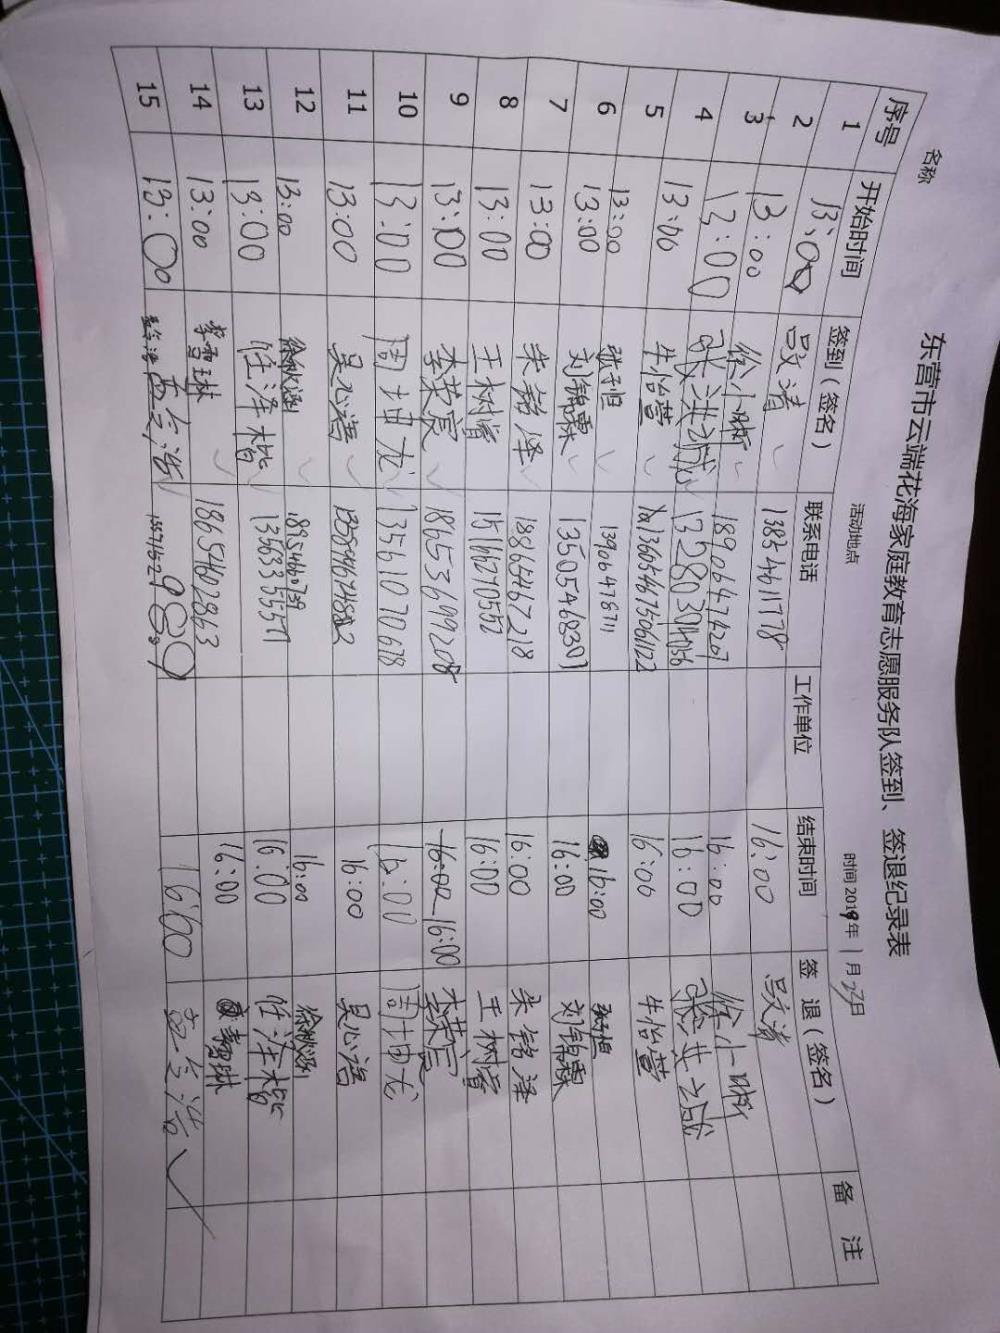 东营市云端花海家庭教育志愿服务队签到、签退纪录表
名称 活动地点 时间2019年1月27日
序号 开始时间 签到(签名) 联系电话 工作单位 结束时间 签 退(签名) 备 注
1 13:00 吕文清 13854611778 16:00 吕文清
2 13:00 徐小晰 18906474207 16:00 徐小晰
3 13:00 张洪诚 16:00
4 13:00 牛怡萱 16:00 牛怡萱
5 13:00 13906478711 16:00
6 13:00 刘锦霖 13505468301 16:00 刘锦霖
7 13:00 朱铭泽 18865467218 16:00 朱铭泽
8 13:00 王树睿 15166270552 16:00 王树睿
9 13:00 李荣宸 18653699208 16:00 16:00 李荣宸
10 13:00 周坤龙 13561070678 16:00 周坤龙
11 13:00 吴心语 16:00 吴心语
12 13:00 徐秋涵 18954660739 16:00 徐秋涵
13 13:00 任泽楷 13563355571 16:00 任泽楷
14 13:00 李雪琳 18654602863 16:00 李雪琳
15 13:00 1600